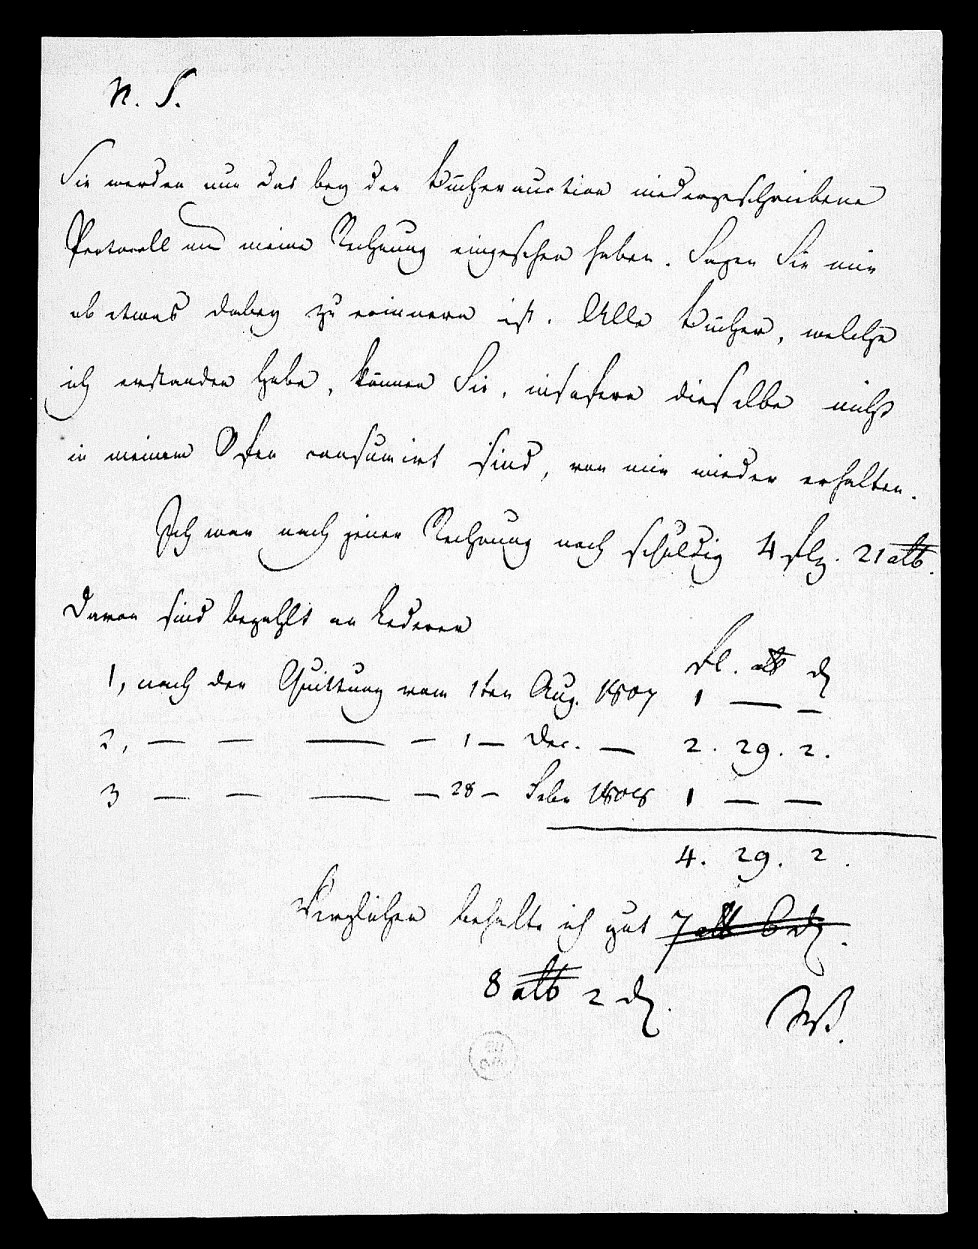 N. S.
Sie werden nun das bey der Bücherauction niedergeschriebene
Protocoll und meine Rechnung eingesehen haben. Sagen Sie mir
ob etwas dabey zu erinnern ist. Alle Bücher, welche
ich erstanden habe, können Sie, insofern dieselbe nicht
in meinem Ofen consumirt sind, von mir wieder erhalten.
Ich war nach jener Rechnung noch schuldig 4 flz. 21 alb.
Davon sind bezahlt an Lederer
fl. alb d
1, nach der Quittung vom 1ten Aug. 1807 1 — —
2, — — — — 1 — Dec. — 2. 29. 2.
3 — — — — 28 — Febr 1808 1 — —
4. 29. 2.
Verglichen behalte ich gut 7 alb 6 d.
8 alb 2 d.
W.